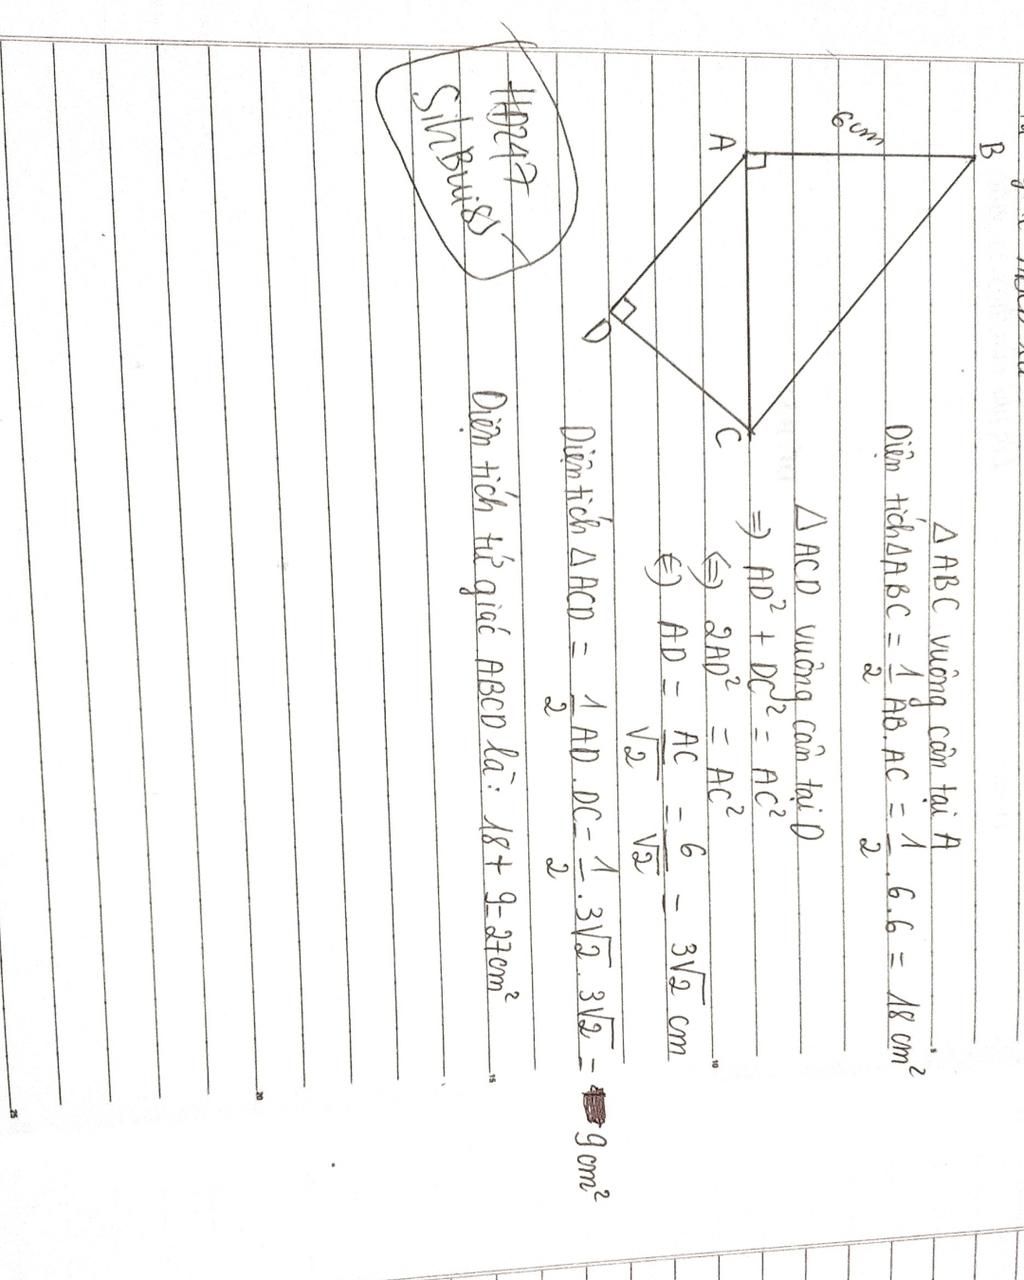 B
6cm
A
C
D
△ABC vuông cân tại A
Diện tích △ABC = 1/2 AB.AC = 1/2 . 6.6 = 18cm²
△ACD vuông cân tại D
⇒ AD² + DC² = AC²
⇔ 2AD² = AC²
⇔ AD = AC/√2 = 6/√2 = 3√2 cm
Diện tích △ACD = 1/2 AD.DC = 1/2 . 3√2 . 3√2 = 9cm²
Diện tích tứ giác ABCD là: 18 + 9 = 27cm²
HD247
5
10
15
20
25